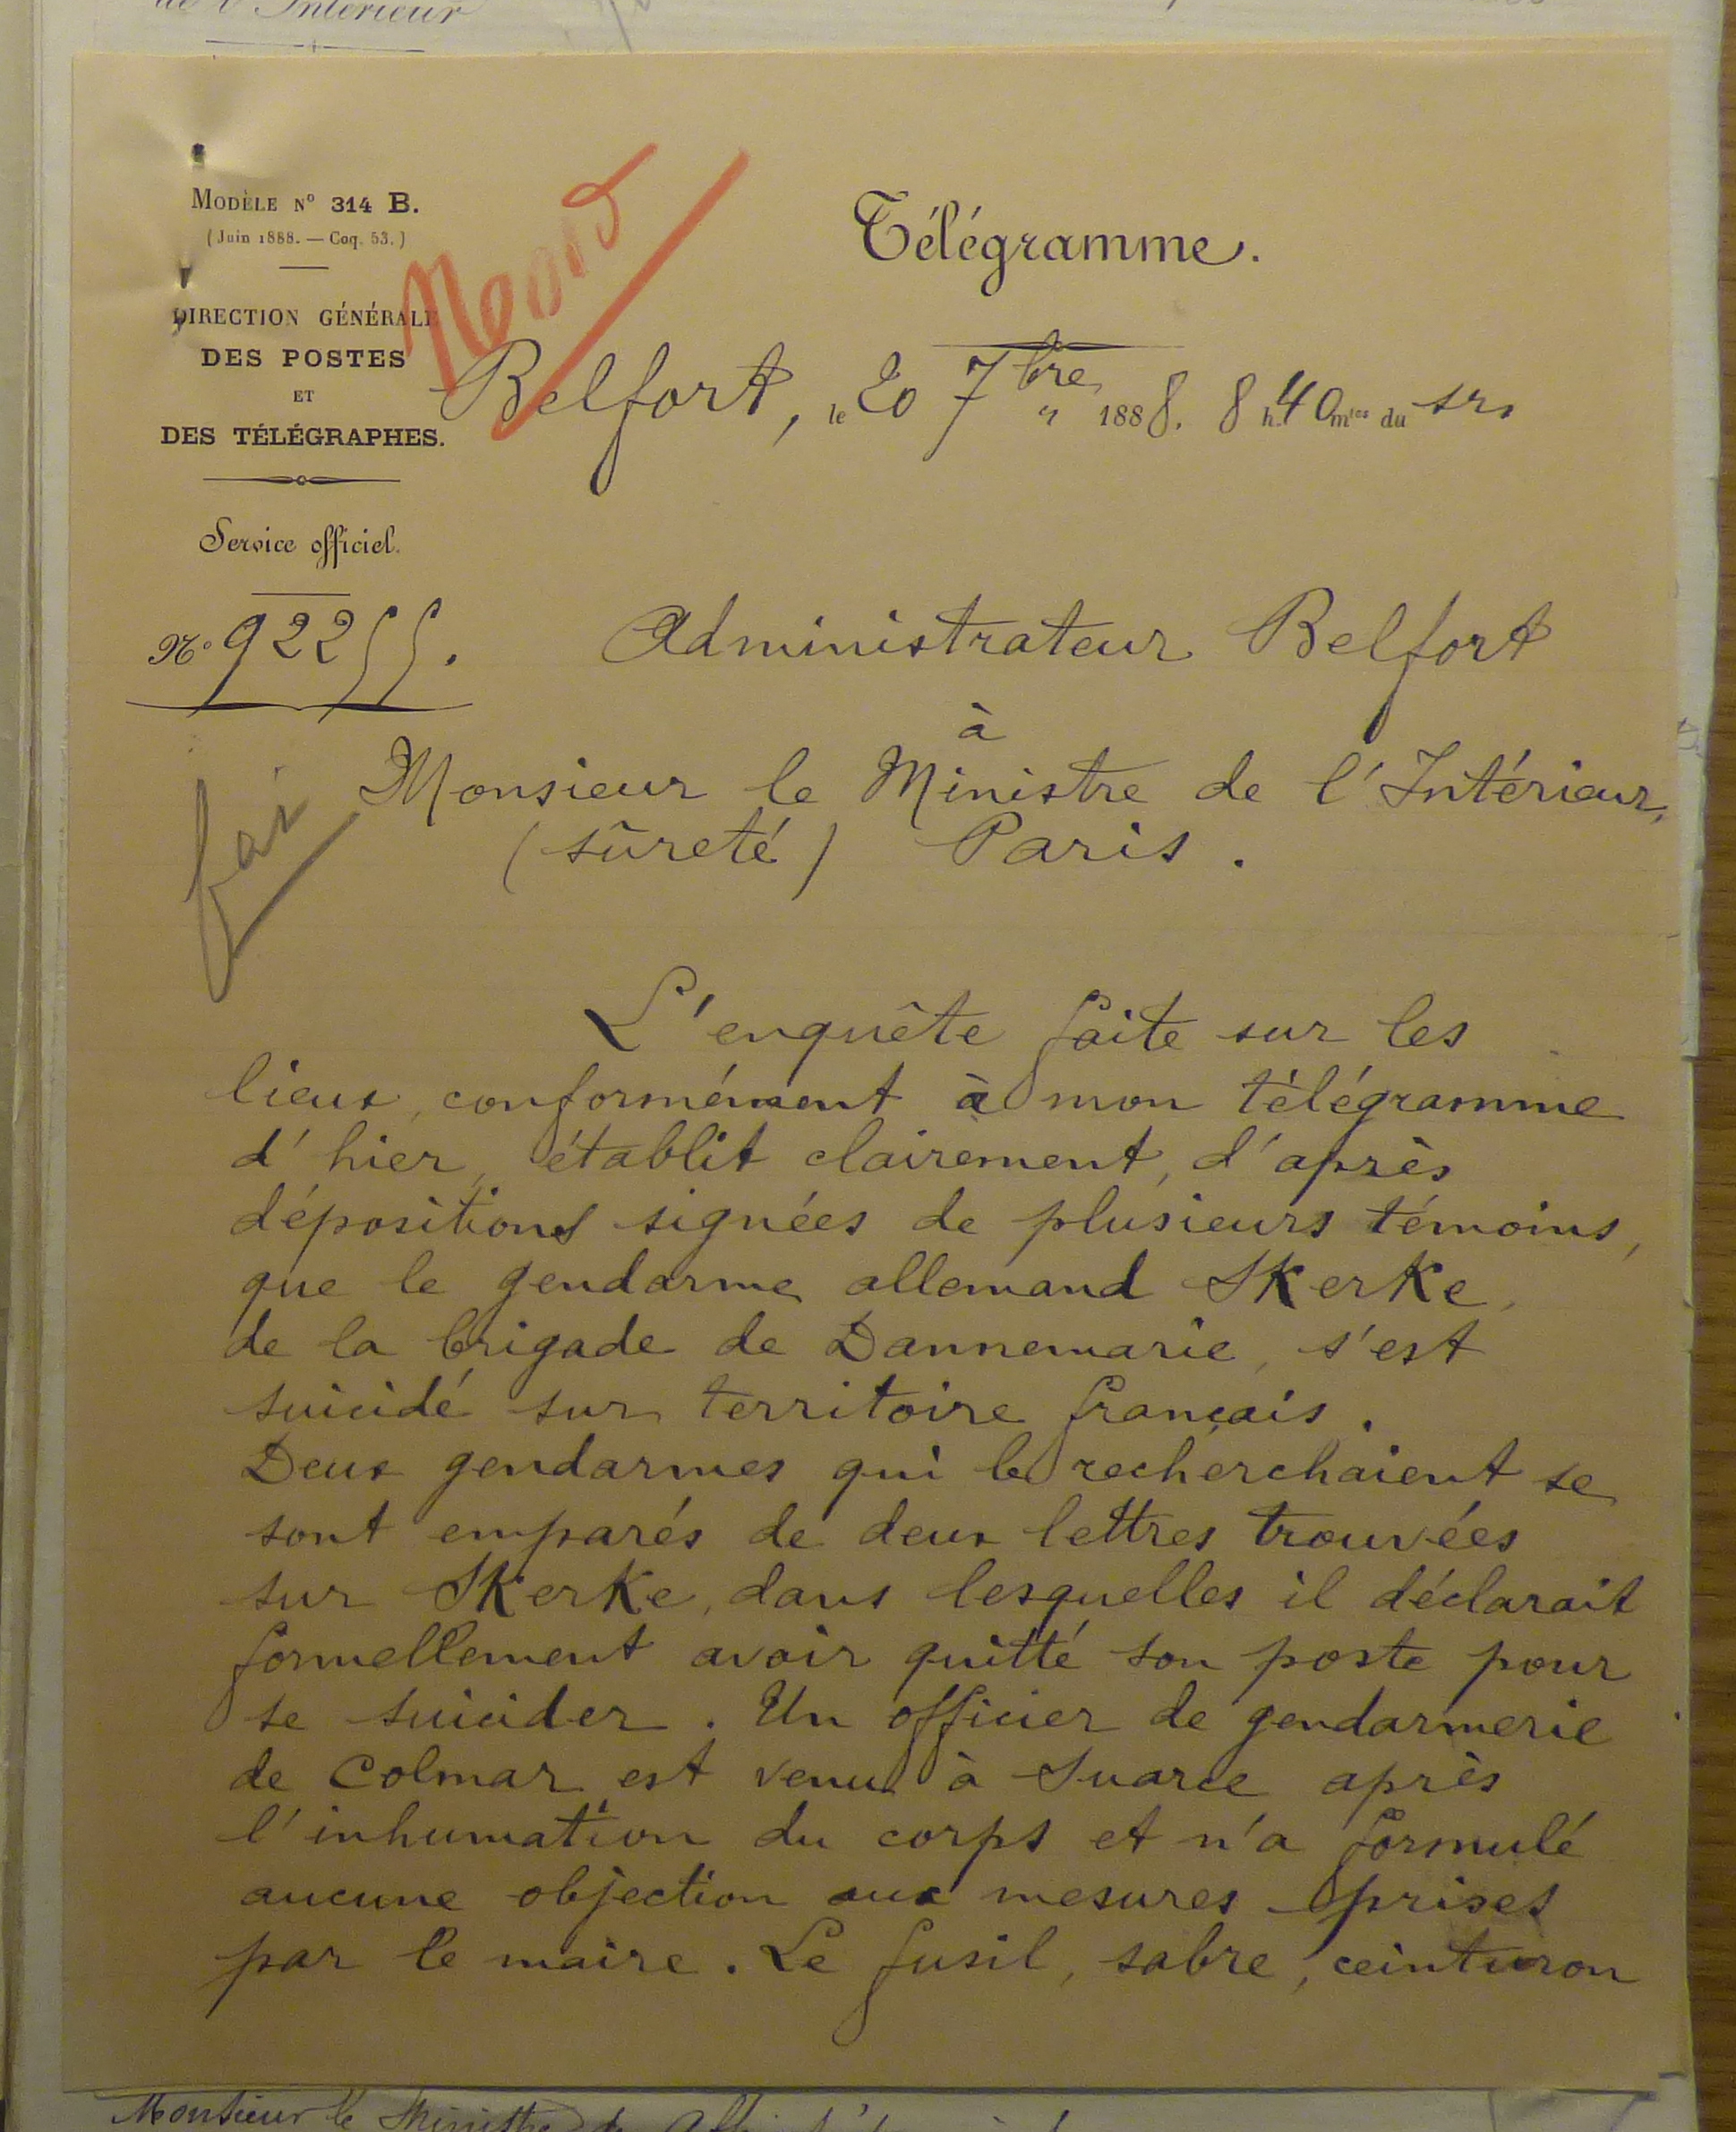 de l'Intérieur
Modèle N° 314 B.
(Juin 1888. — Coq. 53.)
DIRECTION GÉNÉRALE
DES POSTES
ET
DES TÉLÉGRAPHES.
Service officiel.
N° 92255.
Télégramme.
Belfort, le 20 7bre 1888. 8 h. 40 mtes du srs
Administrateur Belfort
à
Monsieur le Ministre de l'Intérieur,
(sûreté) Paris.
L'enquête faite sur les
lieux, conformément à mon télégramme
d'hier, établit clairement, d'après
dépositions signées de plusieurs témoins,
que le gendarme allemand SKerKe,
de la brigade de Dannemarie, s'est
suicidé sur territoire français.
Deux gendarmes qui le recherchaient se
sont emparés de deux lettres trouvées
sur SKerKe, dans lesquelles il déclarait
formellement avoir quitté son poste pour
se suicider. Un officier de gendarmerie
de Colmar est venu à Suarce après
l'inhumation du corps et n'a formulé
aucune objection aux mesures prises
par le maire. Le fusil, sabre, ceinturon
Monsieur le Ministre